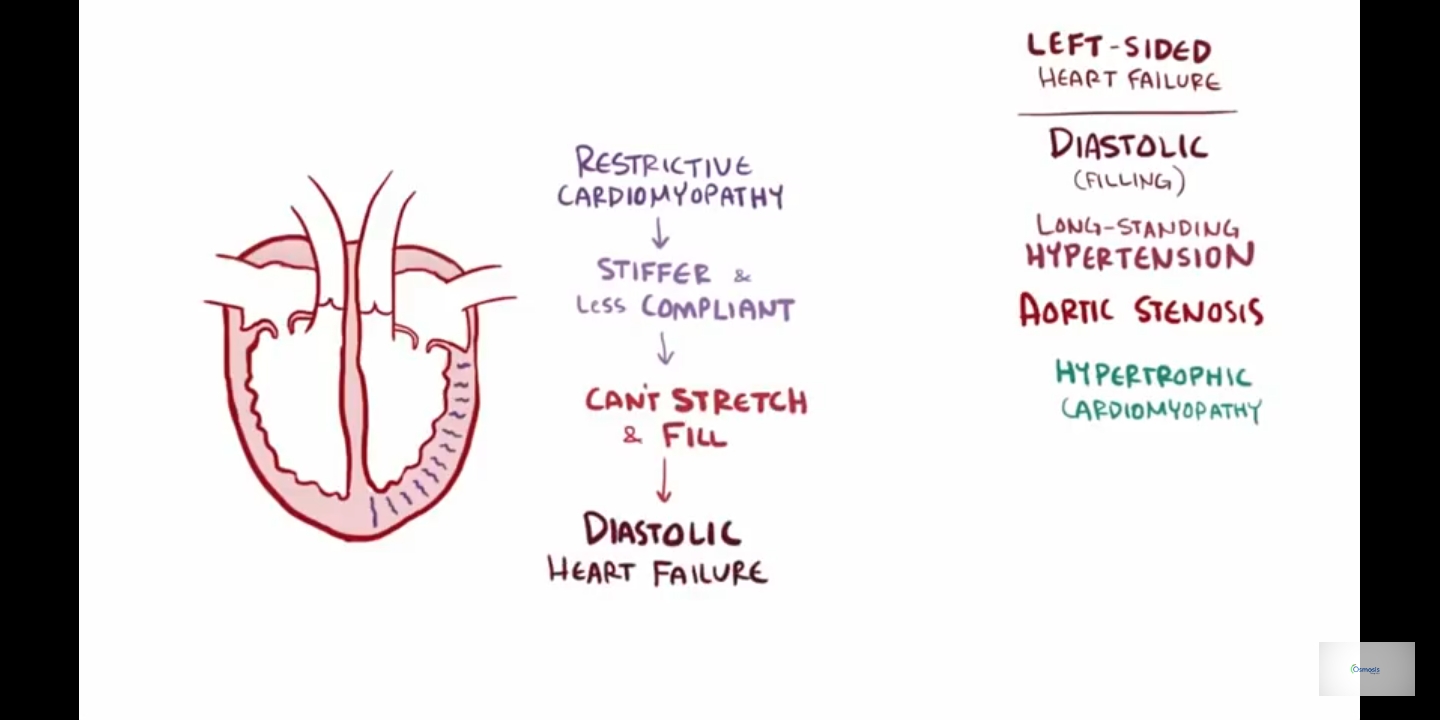 RESTRICTIVE
CARDIOMYOPATHY
STIFFER &
LESS COMPLIANT
CAN'T STRETCH
& FILL
DIASTOLIC
HEART FAILURE
LEFT-SIDED
HEART FAILURE
DIASTOLIC
(FILLING)
LONG-STANDING
HYPERTENSION
AORTIC STENOSIS
HYPERTROPHIC
CARDIOMYOPATHY
Osmosis